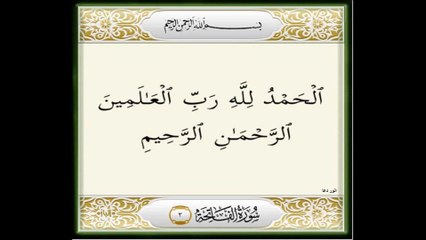 بسم الله الرحمن الرحيم
ٱلْحَمْدُ لِلَّهِ رَبِّ ٱلْعَـٰلَمِينَ
ٱلرَّحْمَـٰنِ ٱلرَّحِيمِ
سُورَةُ الفَاتِحَة ٢